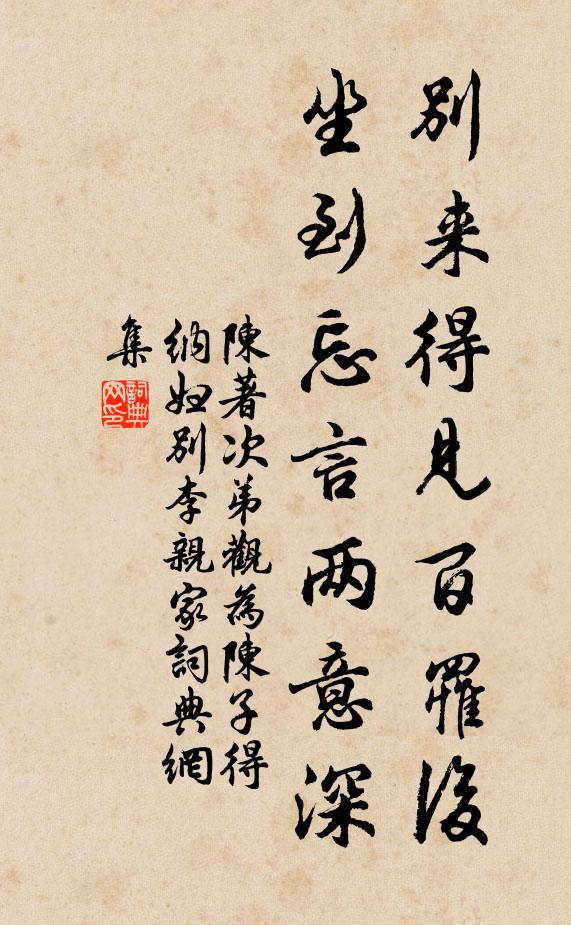 別来得見百罹後
坐到忘言两意深
陳著次弟觀為陳子得
納婦別李親家詞典網
集
詞典网印